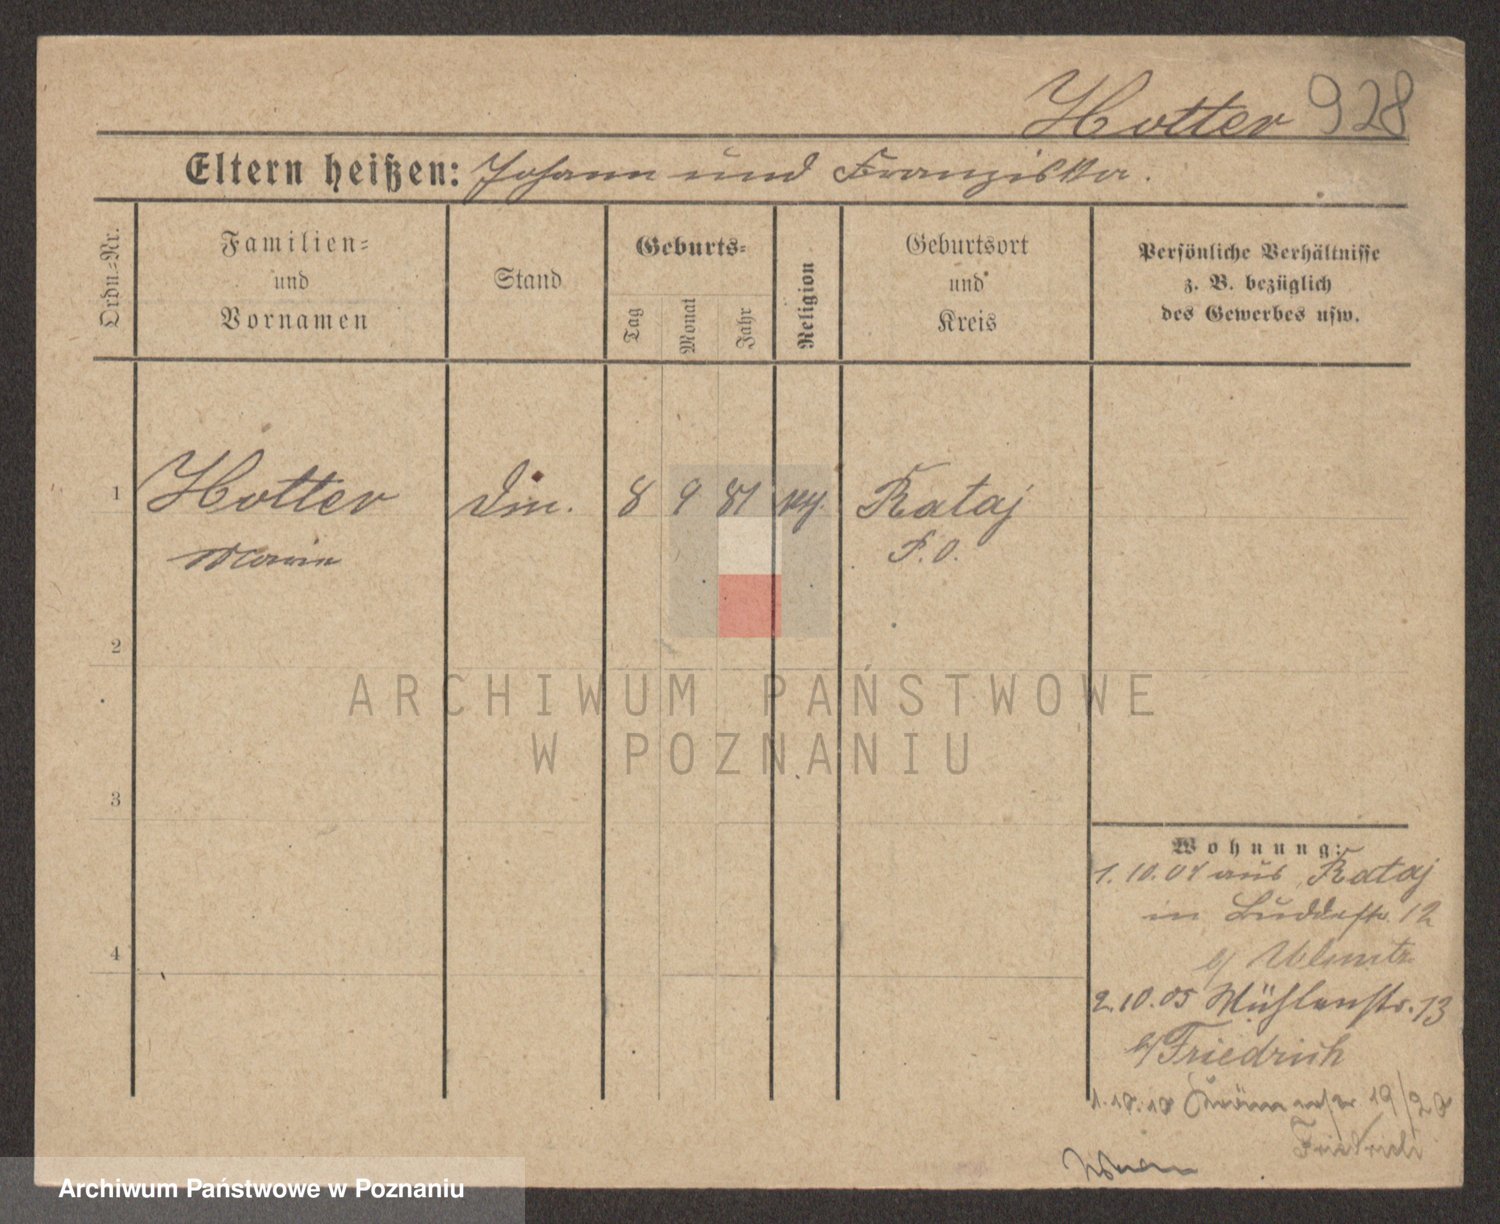 Hotter 928
Eltern heißen: Johann und Franziska.
Ordn.=Nr.
Familien=
und
Vornamen
Stand
Geburts=
Tag
Monat
Jahr
Religion
Geburtsort
und
Kreis
Persönliche Verhältnisse
z. B. bezüglich
des Gewerbes usw.
1 Hotter Din. 8 9 81 Rataj
Marie P. O.
2
ARCHIWUM PAŃSTWOWE
W POZNANIU
3
Wohnung:
1.10.04 aus Rataj
in Buddestr. 12
b/
4
2.10.05 Mühlenstr. 13
b/ Friedrich
1.10.10 19/20
Friedrich
Archiwum Państwowe w Poznaniu